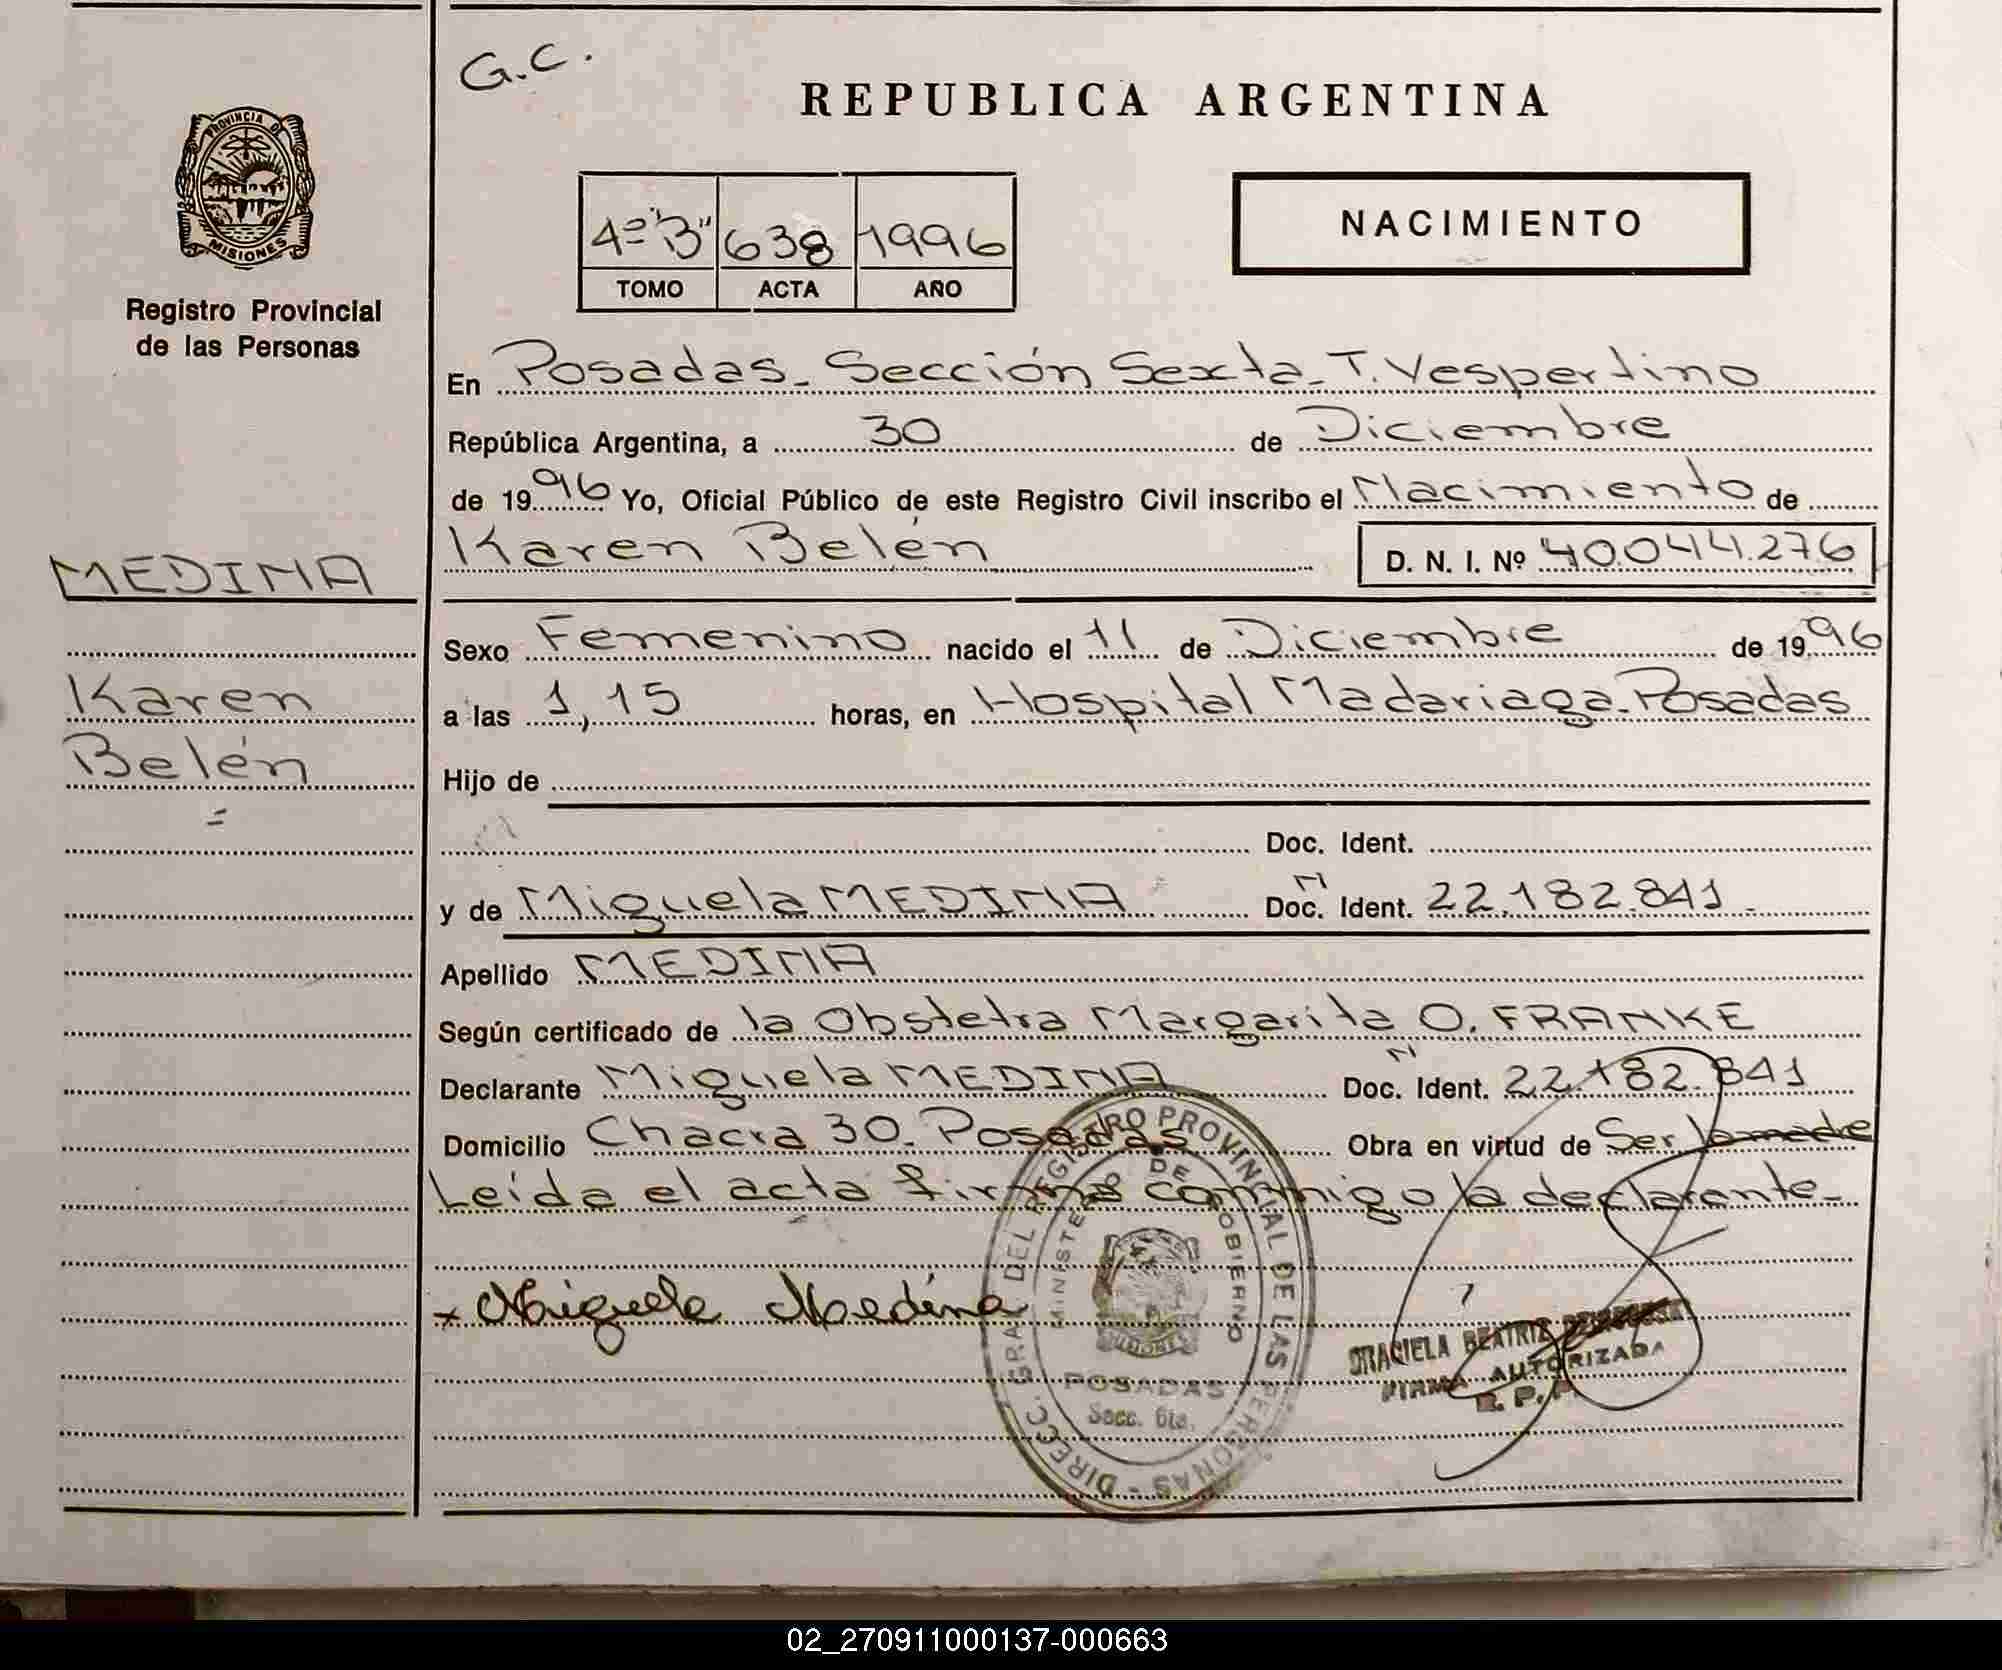 G.C.
REPUBLICA ARGENTINA
PROVINCIA DE
MISIONES
Registro Provincial
de las Personas
4º "B" 638 1996
TOMO ACTA AÑO
NACIMIENTO
En Posadas - Sección Sexta - T. Vespertino
República Argentina, a 30 de Diciembre
de 1996 Yo, Oficial Público de este Registro Civil inscribo el Nacimiento de
Karen Belén D. N. I. Nº 40.044.276
MEDINA
Karen
Belén
=
Sexo Femenino nacido el 11 de Diciembre de 1996
a las 1,15 horas, en Hospital Madariaga - Posadas
Hijo de
Doc. Ident.
y de Miguela MEDINA Doc. N Ident. 22.182.841 -
Apellido MEDINA
Según certificado de la Obstetra Margarita O. FRANKE
Declarante Miguela MEDINA Doc. N Ident. 22.182.841
Domicilio Chacra 30. Posadas Obra en virtud de Ser la madre
Leída el acta firma conmigo la declarante -
x Miguela Medina
DIRECC. GRAL. DEL REGISTRO PROVINCIAL DE LAS PERSONAS -
MINISTERIO DE GOBIERNO
MISIONES
POSADAS
Secc. 6ta.
GRACIELA BEATRIZ
FIRMA AUTORIZADA
R. P. P.
02_270911000137-000663